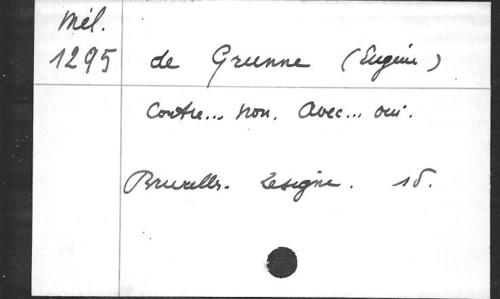 Mél.
1295 de Grunne (Eugène)
Contre... non. Avec... oui.
Bruxelles. Lesigne. s.d.